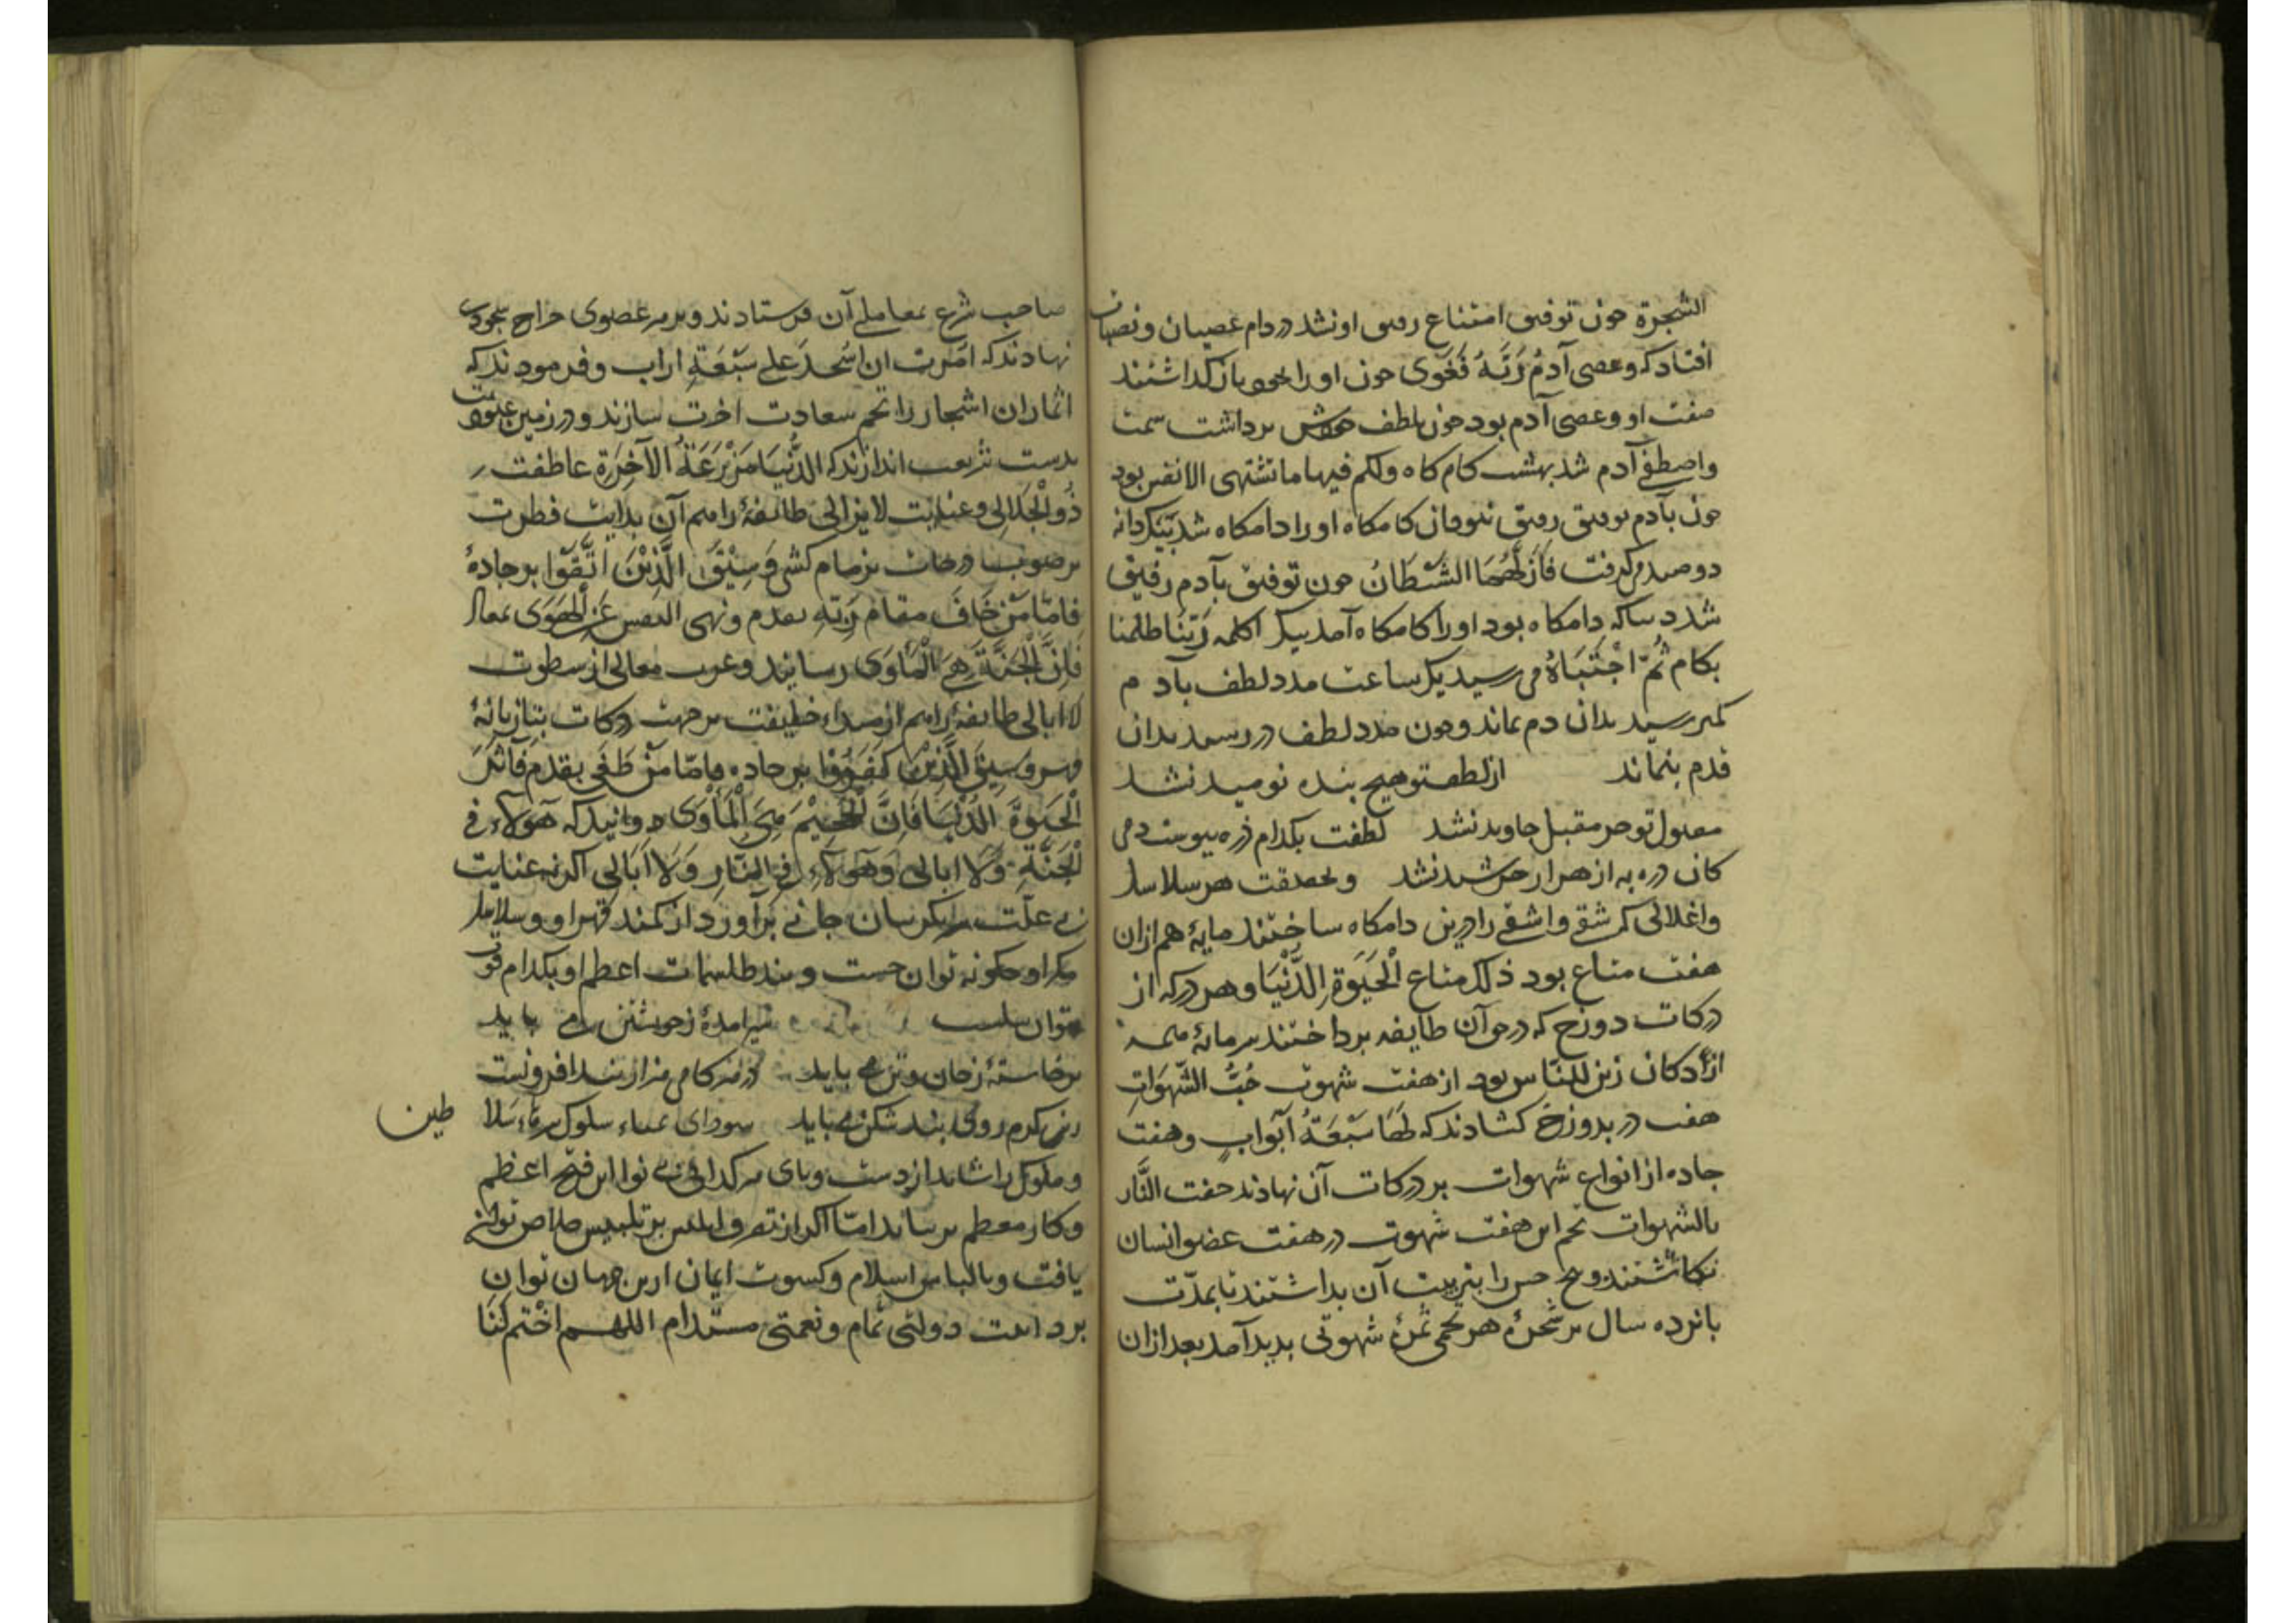 الشجرة چون توفیق امتناع رفیق او نشد در دام عصیان و نسیان
افتاد که وعصی آدم ربه فغوی چون او را بخود باز گذاشتند
صفت او وعصی آدم بود چون بلطف خودش برداشت سمت
واصطفی آدم شد بهشت کام کاه ولکم فیها ما تشتهی الانفس بود
چون بآدم توفیق رفیق نبود آن کامکاه او را دامکاه شد بیکدانه
دو صید گرفت فَاَزَلَّهُمَا الشَّیْطَانُ چون توفیق بآدم رفیق
شد دنیا که دامکاه بود او را کامکاه آمد بیک کلمه رَبَّنَا ظلمنا
بکام ثُمَّ اجْتَبَاهُ می رسید یکساعت مدد لطف بآدم
کمتر رسید بدان دم بماند و چون مدد لطف در رسید بدان
قدم بنماند از لطف تو هیچ بنده نومید نشد
مقبول تو جز مقبل جاوید نشد لطفت بکدام ذره پیوست دمی
کان ذره به از هزار خورشید نشد وبحقیقت هر سلاسل
واغلالی که شقی و اشقی را درین دامکاه ساختند مایۀ هم ازان
هفت متاع بود ذلک متاع الْحَیَوةِ الدُّنْیَا و هر درکه از
درکات دوزخ که در حق آن طایفه برداختند سرمایۀ همه
از دکان زین للناس بود از هفت شهوت حُبُّ الشَّهَوَاتِ
هفت در بدوزخ گشادند که لَهَا سَبْعَةُ اَبْوَابٍ وهفت
جاده از انواع شهوات بر درکات آن نهادند حفت النَّار
بالشهوات تخم این هفت شهوت در هفت عضو انسان
بکاشتند و پنج حس را بتربیت آن بداشتند تا بمدّت
پانزده سال بر شجرۀ هر تخمی ثمرۀ شهوتی بدید آمد بعد ازان
صاحب شرع بمعاملی آن فرستادند و بر هر عضوی خراج سجودی
نهادند که امرت ان اسجد علی سَبْعَةِ اراب و فرمودند که
اثمار ان اشجار را تخم سعادت اخرت سازند و در زمین عبودیت
بدست شریعت اندازند که الدُّنْیَا مَزْرَعَةُ الْآخِرَةِ عاطفت
ذُو الْجَلَالِی و عنایت لا یزالی طائفۀ را هم از بدایت فطرت
بر صوب درجات بزمام کشی وَسِیْقَ الَّذِیْنَ اتَّقَوْا بر جادۀ
فَامَّا مَنْ خَافَ مقام رَبِّهِ بقدم ونهی النفس عَنِ الْهَوَی بمعاد
فَاِنَّ الْجَنَّةَ هِیَ الْمَأْوَی رسانید و عزت معالی از سطوت
لا ابالی طایفۀ را هم از مبداء خلیقت بر جهت درکات بتازیانۀ
قهر وسِیْقَ الَّذِیْنَ کَفَرُوْا بر جاده فامّا مَنْ طَغَی بقدم وَآثَرَ
الْحَیَوةَ الدُّنْیَا فَاِنَّ الْجَحِیْمَ هِیَ الْمَأْوَی دوانید که هؤلاء فی
الْجَنَّةِ وَلَا ابالی وَهَؤلَاءِ فِی النَّارِ وَلَا اُبَالِی اگر نه عنایت
بی علّت سر بگریبان جانی برآورد از کمند قهر او و سلاسل
مکر او چگونه توان جست و بند طلسمات اعظم او بکدام قوت
توان شکست سیر آمدۀ ز خویشتن می باید
برخاستۀ ز جان و تن می باید در هر گامی هزار بند افزونست
زین گرم روی بند شکن می باید سودای تمناء سلوک سرباء سلاطین
و ملوک را شاید از دست و بای هر گدائی بی نوا این فتح اعظم
و کار معظم بر ساید امّا اگر از تصرف ابلیس بر تلبیس خلاص توان
یافت و با لباس اسلام و کسوت ایمان ازین جهان توان
برد اینت دولتی تمام و نعمتی مستدام اللهم اخْتِم لَنَا